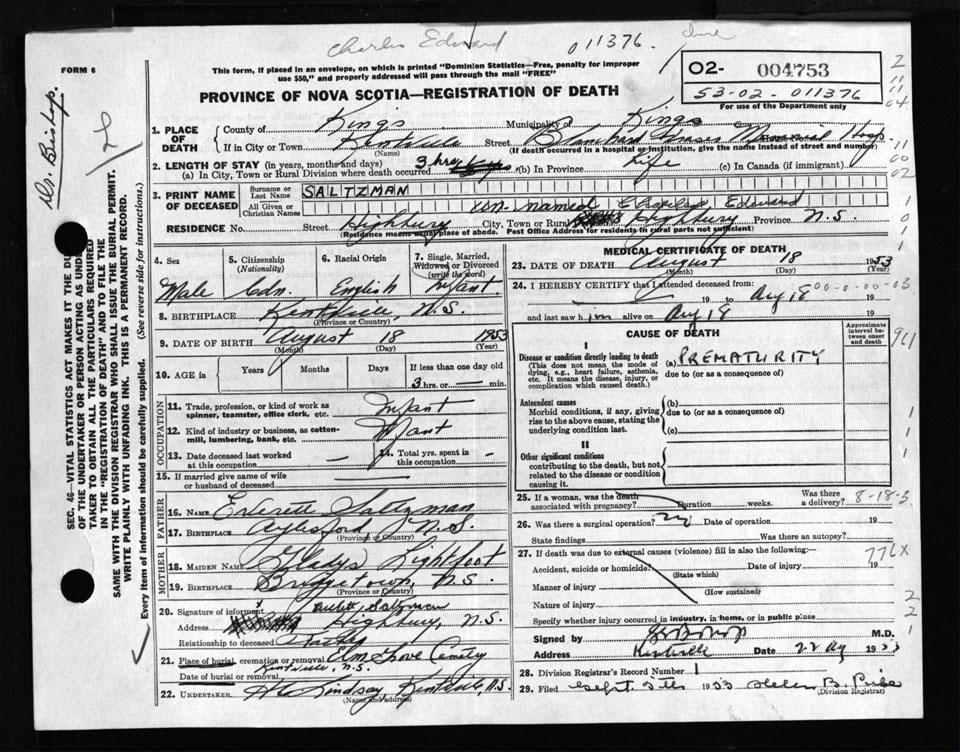 Charles Edward
011376.
FORM 6
This form, if placed in an envelope, on which is printed "Dominion Statistics—Free, penalty for improper
use $50," and properly addressed will pass through the mail "FREE"
02- 004753
53-02-011376
For use of the Department only
PROVINCE OF NOVA SCOTIA—REGISTRATION OF DEATH
Dr. Bishop.
SEC. 46—VITAL STATISTICS ACT MAKES IT THE DU
OF THE UNDERTAKER OR PERSON ACTING AS UND
TAKER TO OBTAIN ALL THE PARTICULARS REQUIRED
IN THE "REGISTRATION OF DEATH" AND TO FILE THE
SAME WITH THE DIVISION REGISTRAR WHO SHALL ISSUE THE BURIAL PERMIT.
WRITE PLAINLY WITH UNFADING INK. THIS IS A PERMANENT RECORD.
Every item of information should be carefully supplied. (See reverse side for instructions.)
1. PLACE OF DEATH
County of Kings Municipality of Kings
If in City or Town Kentville Street Blanchard Fraser Memorial Hosp
(Name) (If death occurred in a hospital or institution, give the name instead of street and number)
2. LENGTH OF STAY (in years, months and days)
(a) In City, Town or Rural Division where death occurred 3 hrs (b) In Province Life (c) In Canada (if immigrant)
3. PRINT NAME OF DECEASED
Surname or Last Name SALTZMAN
All Given or Christian Names un-named Charles Edward
RESIDENCE No. Street Highbury City, Town or Rural Highbury Province N.S.
(Residence means usual place of abode. Post Office Address for residents in rural parts not sufficient)
4. Sex Male
5. Citizenship (Nationality) Cdn.
6. Racial Origin English
7. Single, Married, Widowed or Divorced (write the word) Infant
8. BIRTHPLACE Kentville, N.S.
(Province or Country)
9. DATE OF BIRTH August 18 1953
(Month) (Day) (Year)
10. AGE in Years Months Days If less than one day old
3 hrs. or — min.
OCCUPATION
11. Trade, profession, or kind of work as spinner, teamster, office clerk, etc. Infant
12. Kind of industry or business, as cotton-mill, lumbering, bank, etc. Infant
13. Date deceased last worked at this occupation — 14. Total yrs. spent in this occupation —
15. If married give name of wife or husband of deceased —
FATHER
16. NAME Everett Saltzman
17. BIRTHPLACE Aylesford, N.S.
(Province or Country)
MOTHER
18. MAIDEN NAME Gladys Lightfoot
19. BIRTHPLACE Bridgetown, N.S.
(Province or Country)
20. Signature of informant Everett Saltzman
Address Highbury, N.S.
Relationship to deceased Father
21. Place of burial, cremation or removal Elm Grove Cemetery
Kentville, N.S.
Date of burial or removal
22. UNDERTAKER H. Lindsay, Kentville, N.S.
(Name and address)
MEDICAL CERTIFICATE OF DEATH
23. DATE OF DEATH August 18 1953
(Month) (Day) (Year)
24. I HEREBY CERTIFY that I attended deceased from:
19 to Aug 18 19
00-0-00-03
and last saw him alive on Aug 18 19
CAUSE OF DEATH
Approximate interval between onset and death
I
Disease or condition directly leading to death
(This does not mean the mode of dying, e.g., heart failure, asthenia, etc. It means the disease, injury, or complication which caused death.)
(a) PREMATURITY
due to (or as a consequence of)
Antecedent causes
Morbid conditions, if any, giving rise to the above cause, stating the underlying condition last.
(b)
due to (or as a consequence of)
(c)
II
Other significant conditions
contributing to the death, but not related to the disease or condition causing it.
25. If a woman, was the death associated with pregnancy? Duration weeks. Was there a delivery?
8-18-3
26. Was there a surgical operation? No Date of operation 19
State findings Was there an autopsy?
27. If death was due to external causes (violence) fill in also the following:
776X
Accident, suicide or homicide? Date of injury 19
(State which)
Manner of injury
(How sustained)
Nature of injury
Specify whether injury occurred in industry, in home, or in public place
Signed by Bishop M.D.
Address Kentville Date 22 Aug 1953
28. Division Registrar's Record Number 1
29. Filed Sept. 1953 Helen B.
(Division Registrar)